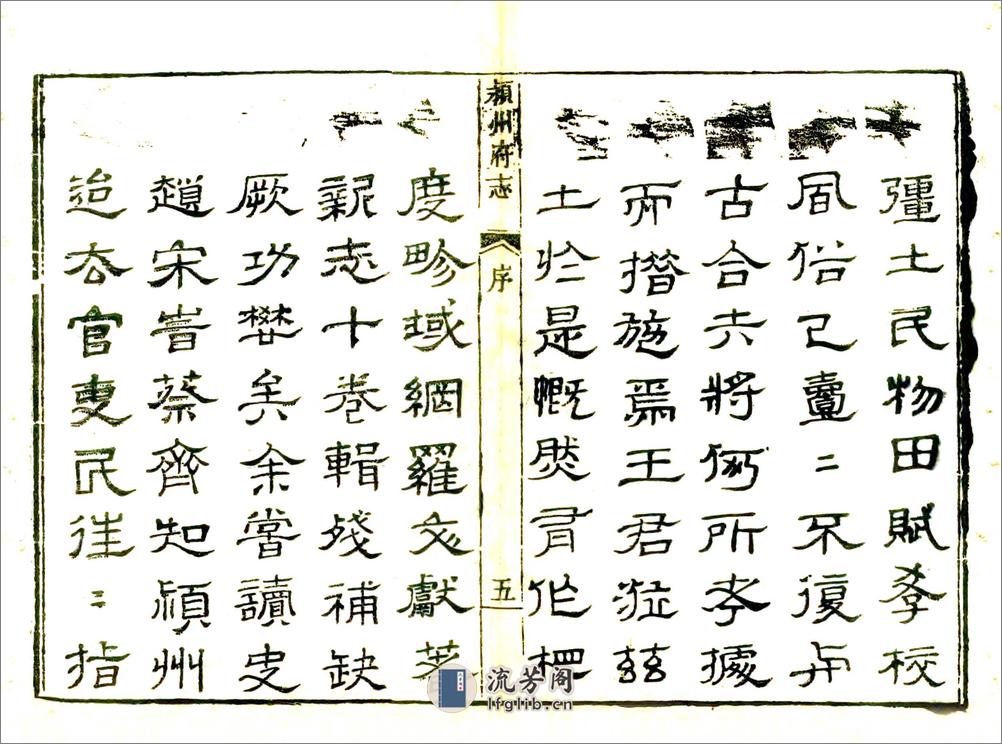 彊土民物田賦孝校
風俗已二不復与
古合夫將何所考據
而措施焉王君莅茲
土於是慨然有作
潁州府志
序
五
度畛域網羅文獻著
新志十卷輯殘補缺
厥功懋矣余嘗讀史
趙宋旹蔡齊知潁州
迨去官吏民往二指
流芳阁
lfglib.cn